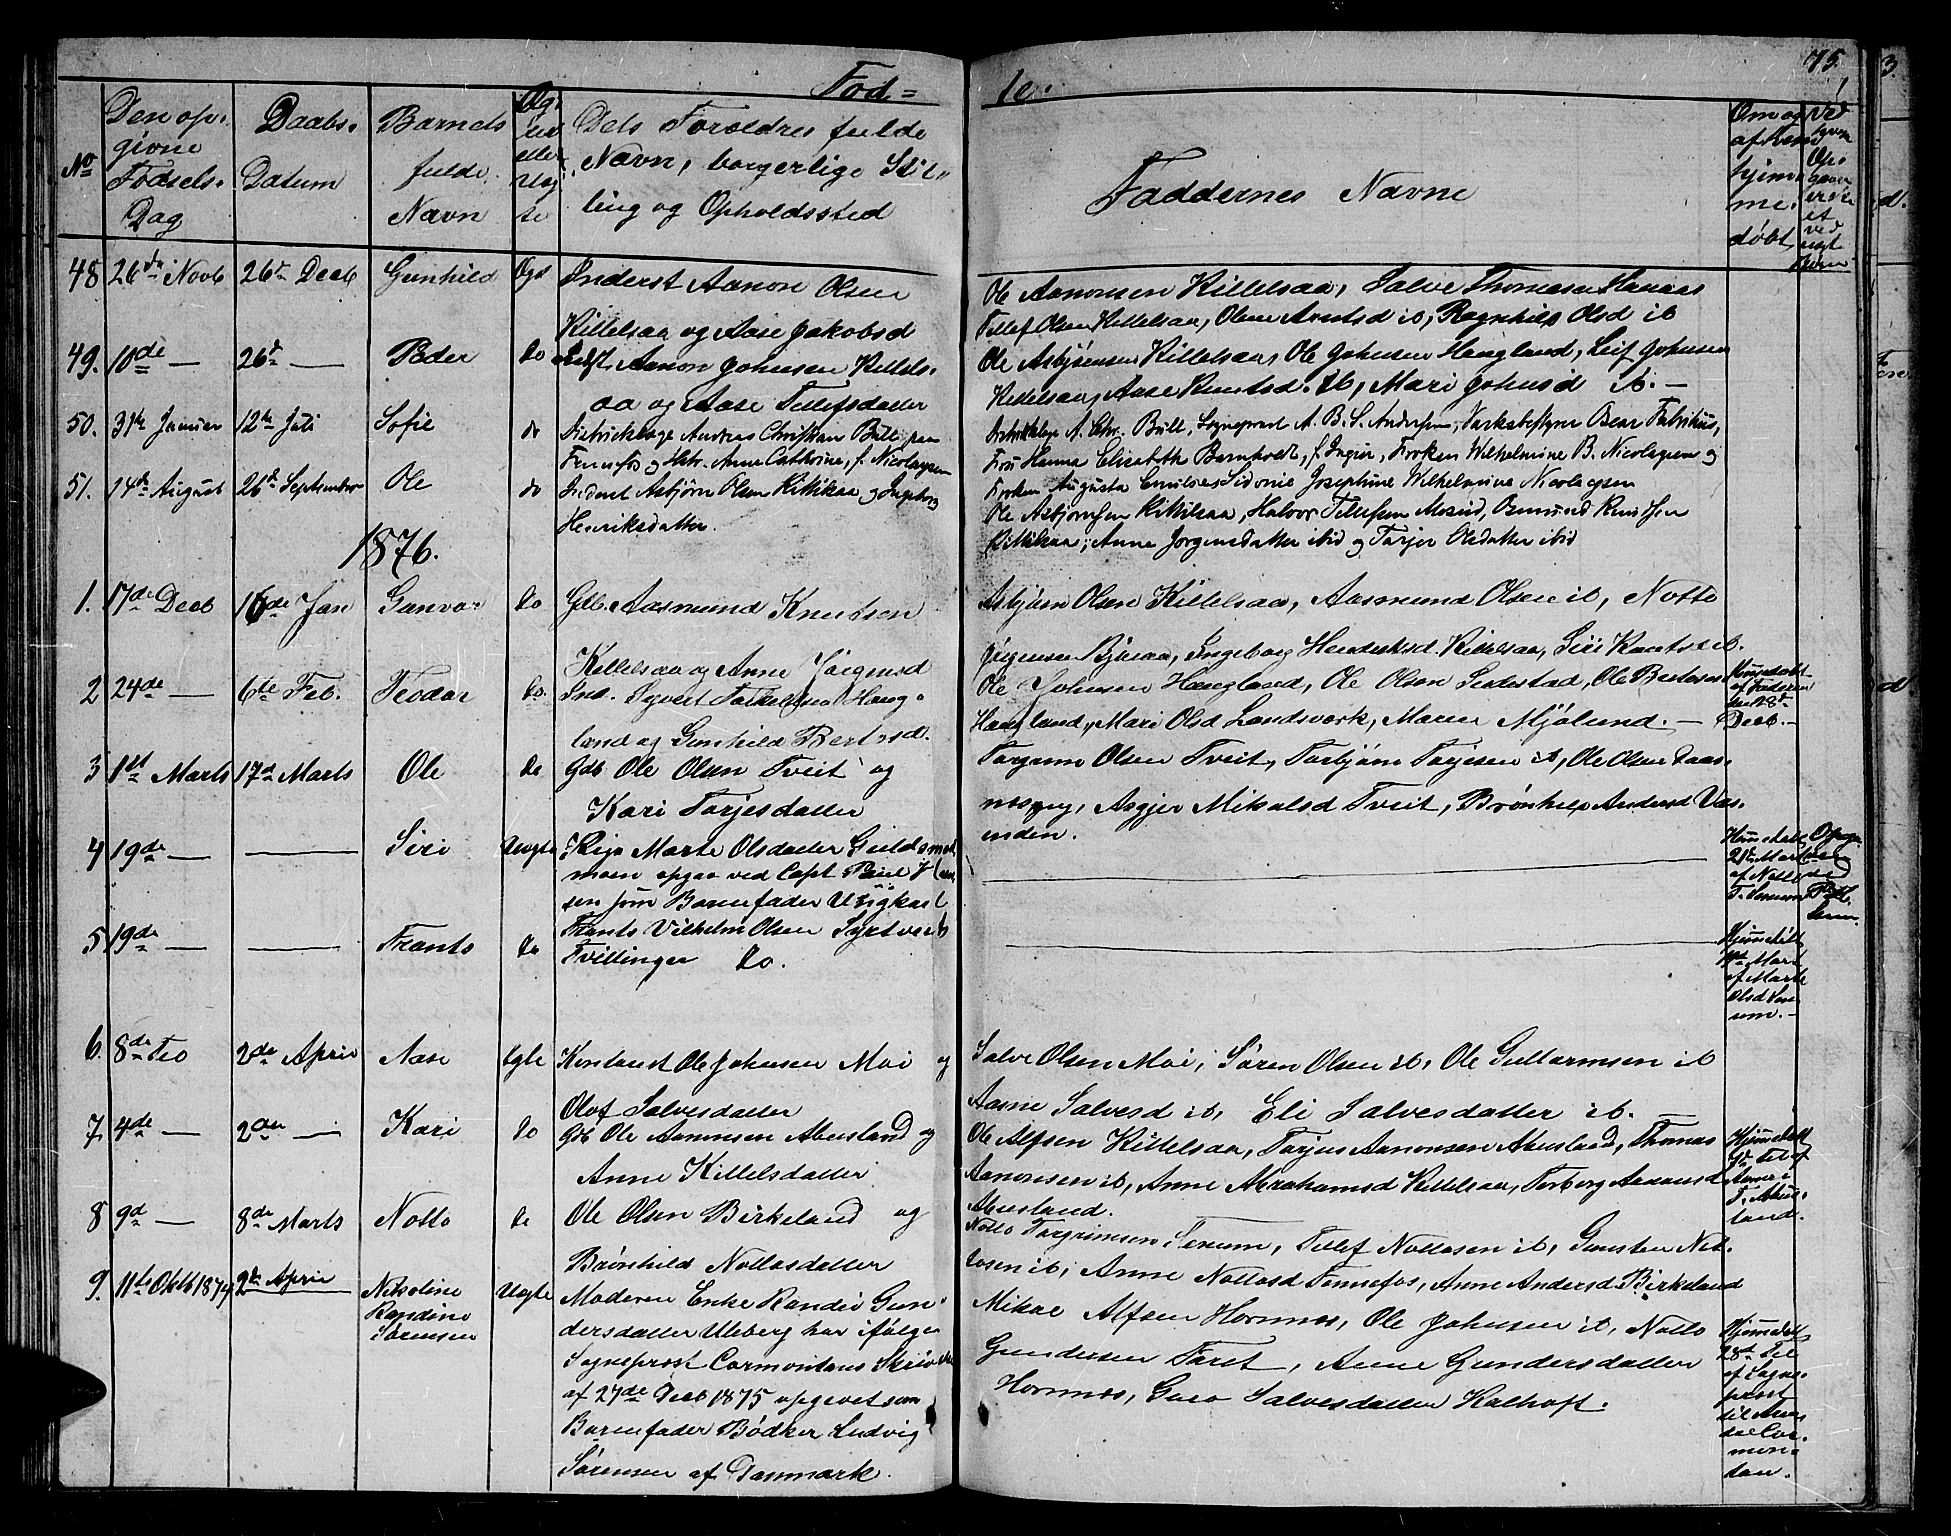 75.
Fød=
te.
No
Den op-
givne
Fødsels-
Dag
Daabs-
Datum
Barnets
fulde
Navn
Æg-
te
eller
Uæg
te
Dets Forældres fulde
Navn, borgerlige Stil-
ling og Opholdssted
Faddernes Navne
48 26de Novb 26de Decb Gunhild Ægt Inderst Aanon Olsen
Kittelsaa og Aase Jakobsd
Ole Aanonsen Kittelsaa, Salve Thomasen
Tellef Olsen Kittelsaa, Olene Arntsd ib, Ragnhild Olsd ib
49. 10de — 26de — Peder do Aanon Johnsen Kittels-
aa og Aase Tellefsdatter
Ole Asbjørnsen Kittelsaa, Ole Johnsen Haugland, Leif Johnsen
Kittelsaa, Aase Knutsd. ib, Mari Johnsd ib. —
50. 31te Januar 12te Juli Sofie do Distriktslæge Andreas Christian Bull paa
Fennefos og Hstr. Anne Cathrine, f. Nicolaysen
Distriktslæge A. Chr. Bull, Sogneprest A. B. S. Andersen, Værksbestyrer Oscar Fabritius,
Fru Hanna Elisabeth Bernhoft, f. Ingier, Frøken Wilhelmine B. Nicolaysen og
Frøken Augusta Emilie Sidonie Josephine Wilhelmine Nicolaysen
51. 14de August 26de September Ole do Inderst Asbjørn Olsen Kittilsaa og Ingeborg
Henriksdatter.
Ole Asbjørnsen Kittilsaa, Halvor Tellefsen Mosud, Osmund Knutsen
Kittilsaa, Anne Jørgensdatter ibid og Tarjer Olsdatter ibid
1876.
1. 17de Decb 16de Jan Gunvor do Gdb. Aasmund Knutsen
Kittelsaa og Anne Jørgensd
Asbjørn Olsen Kittelsaa, Aasmund Olsen ib, Notto
Jørgensen Bjøraa, Ingeborg Henriksd Kittelsaa, Siri Knutsd ib.
2 24de — 6te Feb. Teodor do. Ind. Syvert Haug-
land og Gunhild Bertesd.
Ole Johnsen Haugland, Ole Olsen Ole Bertesen
Haugland, Mari Olsd Landsverk, Maren Mjølund. —
Hjemedøbt
af Faderen
den 28de
Decb. —
3 1st Marts 17de Marts Ole do Gdb Ole Olsen Tveit og
Kari Tarjesdatter
Torgrim Olsen Tveit, Torbjørn Tarjesen ib, Ole Olsen
Asgjer Mikalsd Tveit, Brønhild Andersd Væ-
enden.
4 19de — — Siri Uægte Pige Marte Olsdatter Guldsmed
moen opgav ved Capt. Paul
sen som Barnefader Ungkarl
Frants Vilhelm Olsen Syrtveit
Hjemedøbt
21de Mart
af Notto
T. Senum
5 19de — — Frants do Tvillinger do.
Hjemedøbt
Mart
af Marte
Olsd Sen-
um. —
6. 8de Feb 2den April Aase Ægte Kontorist Ole Johnsen Moi og
Olof Salvesdatter
Salve Olsen Moi, Søren Olsen ib, Ole Guttormsen ib
Aasne Salvesd ib, Eli Salvesdatter ib.
7. 4de — 2den — Kari do Gdb Ole Aanonsen Abusland og
Anne Kittelsdatter
Ole Alfsen Kittelsaa, Tarjus Aanonsen Abusland, Thomas
Aanonsen ib, Anne Abrahamsd Kittelsaa, Torborg Aanonsd
Abusland.
Hjemedøbt
8 9de — 8de Marts Notto do Ole Olsen Birkeland og
Brønhild Nottosdatter
Notto Torgrimsen Senum, Tellef Nottosen ib, Gunsten Not-
tosen ib, Anne Nottosd Fennefos, Anne Andersd Birkeland
9. 11te Oktb 1874 2de April Nikoline
Randine
Sørensen
Uægte Moderen Enke Randei Gun-
dersdatter Uleberg har ifølge
Sogneprest Cormontans Skrivelse
af 27de Decb 1875 opgivet som
Barnefader Bødker Ludvig
Sørensen af Danmark.
Mikal Alfsen Hornnes, Ole Johnsen ib, Notto
Gundersen Faret, Anne Gundersdatter
Hornnes, Guro Salvesdatter Kalhoft.
Hjemedøbt
28de
af Sogne-
prest
Cor-
mon-
tan.